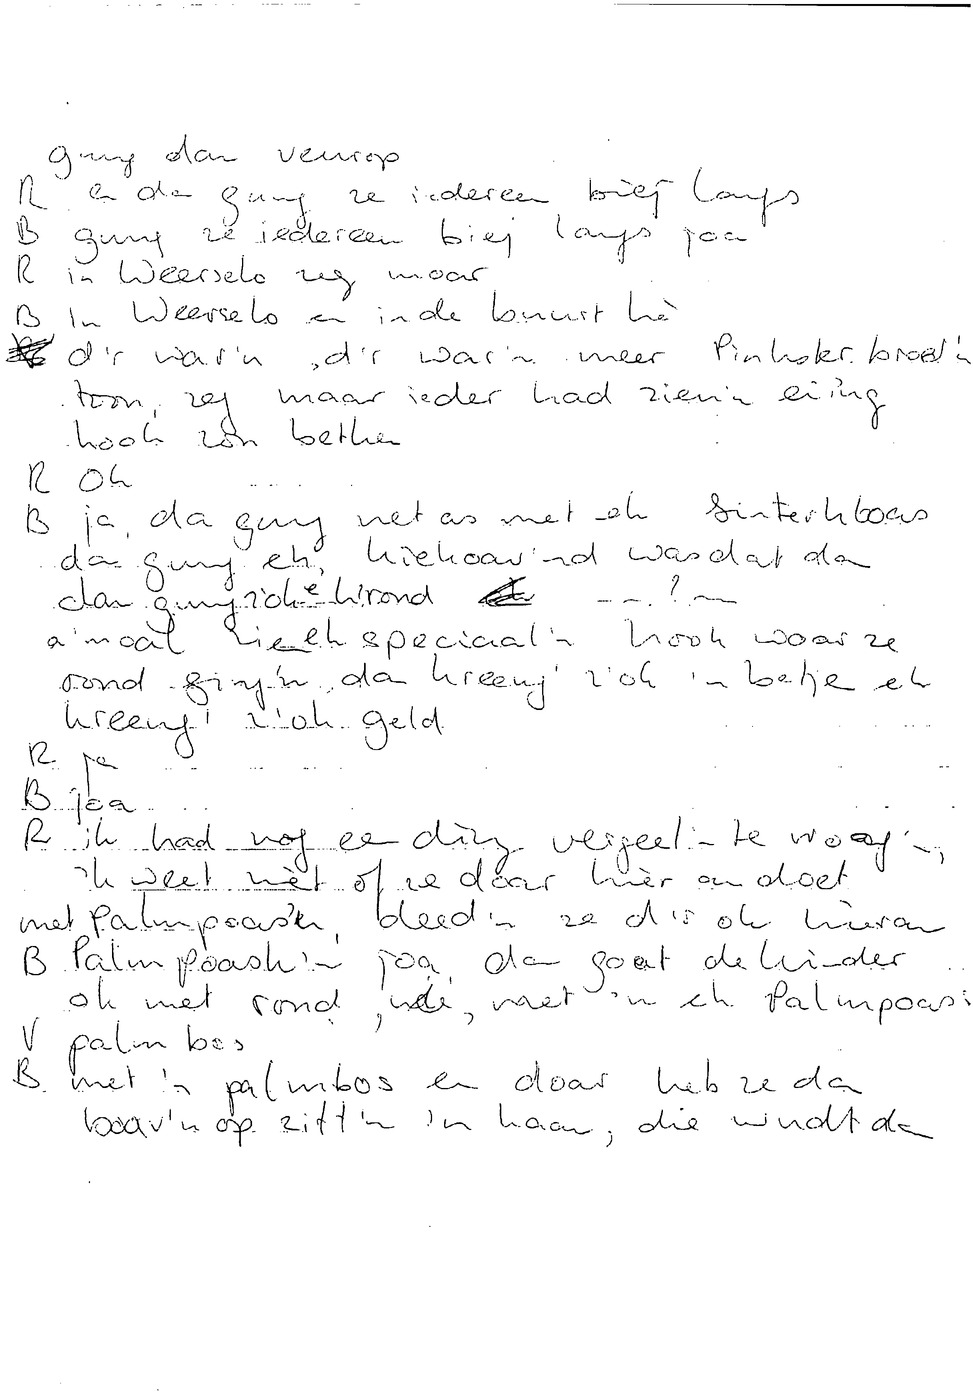 gung dan veurop
R en dan gung ze iedereen biej langs
B gung ze iedereen biej langs joa
R in Weerselo zeg moar
B In Weerselo en in de buurt hè
d'r war'n, d'r war'n meer Pinkster brood'n
toon, zeg maar ieder had zien'n eig'ng
hook zon betken
R Oh
B ja, da gung net as met eh Sinterkloas
dan gung eh, kiekoav'nd was dat dan
dan gung z'ok rond --- ? ---
a'moal speciaal'n hook woar ze
rond ging'n, dan kreeng' z'ok 'n betje eh
kreeng' z'ok geld
R ja
B joa
R ik had nog een ding vergeet'n te vroag'n,
'k weet niet of ze daar hier an doet
met Palmpoas'n, deed'n ze d'r ok hieran
B Palmpoask'n joa, dan goat de kinder
ok met rond, met 'n eh Palmpoas
V palm bos
B met 'n palmbos en doar heb ze dan
boav'n op zitt'n 'n haan, die wudt dan